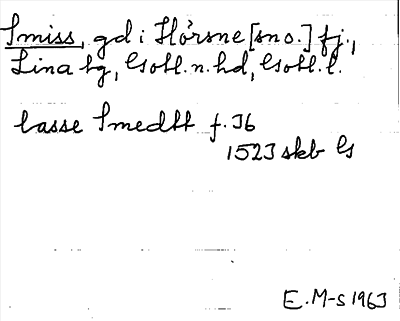 Smiss, gd i Hörsne [sno.] fj.,
Lina tg, Gotl. n. hd, Gotl. l.
lasse Smedtt f. 36
1523 skb G
E. M-s 1963